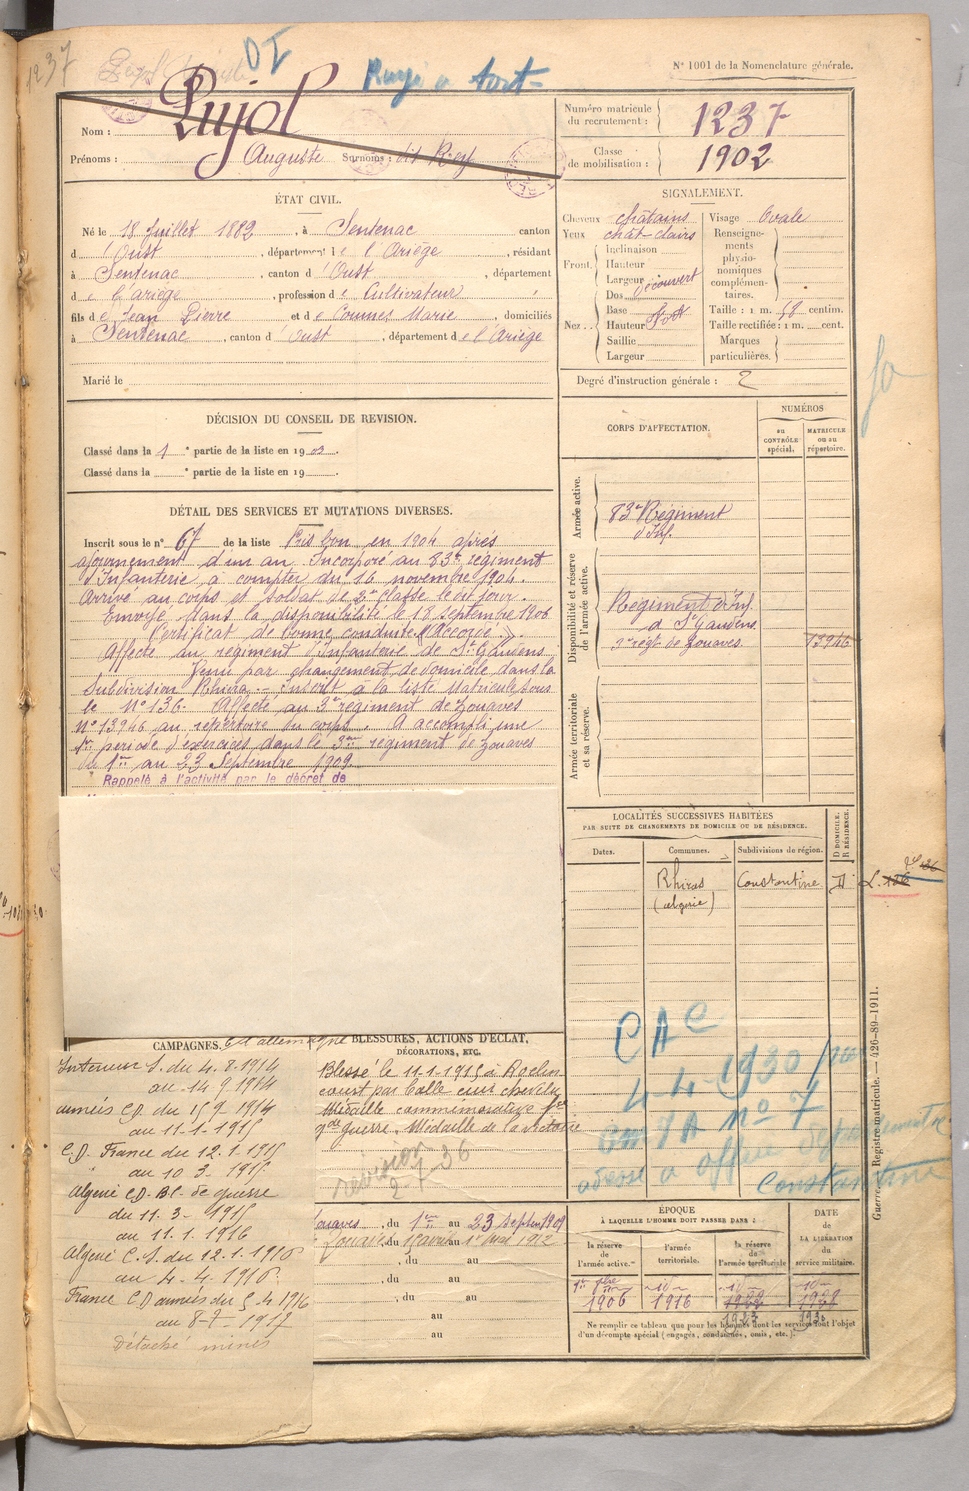 1237
DI
Rayé à tort
N° 1001 de la Nomenclature générale.
Nom : Pujol
Prénoms : Auguste Surnoms : dit Rey
Numéro matricule du recrutement : 1237
Classe de mobilisation : 1902
ÉTAT CIVIL.
Né le 18 Juillet 1882, à Sentenac canton
d'Oust, département de l'Ariège, résidant
à Sentenac, canton d'Oust, département
de l'ariège, profession de Cultivateur
fils de Jean Pierre et de Coumes Marie, domiciliés
à Sentenac, canton d'Oust, département de l'Ariège
Marié le
SIGNALEMENT.
Cheveux châtains
Yeux chât-clairs
Front. Inclinaison
Hauteur
Largeur découvert
Nez. Dos
Base
Hauteur fort
Saillie
Largeur
Visage Ovale
Renseignements physionomiques complémentaires.
Taille : 1 m. 58 centim.
Taille rectifiée : 1 m. cent.
Marques particulières.
Degré d'instruction générale : 2
DÉCISION DU CONSEIL DE REVISION.
Classé dans la 1e partie de la liste en 1903.
Classé dans la e partie de la liste en 19
DÉTAIL DES SERVICES ET MUTATIONS DIVERSES.
Inscrit sous le n° 67 de la liste Pris bon en 1904 après
ajournement d'un an. Incorporé au 83e régiment
d'Infanterie à compter du 14 novembre 1904.
Arrivé au corps et soldat de 2e classe le dit jour.
Envoyé dans la disponibilité le 18 septembre 1906
Certificat de bonne conduite "Accordé".
Affecté au régiment d'Infanterie de St Gaudens
Venu par changement de domicile dans la
Subdivision Rhira - inscrit à la liste Matricule sous
le N° 136. Affecté au 3e régiment de Zouaves
N° 13946 au répertoire du corps. A accompli une
1re période d'exercices dans le 3me régiment de zouaves
du 1er au 23 Septembre 1909.
Rappelé à l'activité par le décret de
CORPS D'AFFECTATION.
NUMÉROS
au CONTRÔLE spécial.
MATRICULE ou au répertoire.
Armée active.
83e Régiment d'Inf.
Disponibilité et réserve de l'armée active.
Régiment d'Inf.
d St Gaudens
3e régt de Zouaves. 13946
Armée territoriale et sa réserve.
LOCALITÉS SUCCESSIVES HABITÉES
PAR SUITE DE CHANGEMENTS DE DOMICILE OU DE RÉSIDENCE.
Dates.
Communes.
Subdivisions de région.
D DOMICILE. R RÉSIDENCE.
Rhiras (algérie) Constantine D
L. 136
CAC
4-4-1930
n° 7
adressé à office départemental
Constantine
CAMPAGNES.
Ct allemagne
Intérieur S. du 4.8.1914
au 14 9 1914
armées CD du 15 9 1914
au 11-1-1915
C.D. France du 12.1.1915
au 10 3. 1915
Algérie CD. BC de guerre
du 11. 3 - 1915
au 11. 1 1916
Algérie C. S. du 12. 1. 1916
au 4. 4. 1916.
France CD armées du 5 4 1916
au 8-7-1917
Détaché mines
BLESSURES, ACTIONS D'ÉCLAT, DÉCORATIONS, ETC.
Blessé le 11-1-1915 à Roclincourt par balle cuir chevelu
Médaille commémorative
gde guerre. Médaille de la victoire
revision
2-7-36
Zouaves, du 1er au 23 septbre 1909
Zouaves du 15 avril au 1er mai 1912
, du au
, du au
, du au
au
au
ÉPOQUE
À LAQUELLE L'HOMME DOIT PASSER DANS :
la réserve de l'armée active.
l'armée territoriale.
la réserve de l'armée territoriale
DATE de LA LIBÉRATION du service militaire.
1906
1916
1923
Ne remplir ce tableau que pour les hommes dont les services font l'objet d'un décompte spécial (engagés, condamnés, omis, etc.).
Guerre. — Registre matricule. — 426-89-1911.